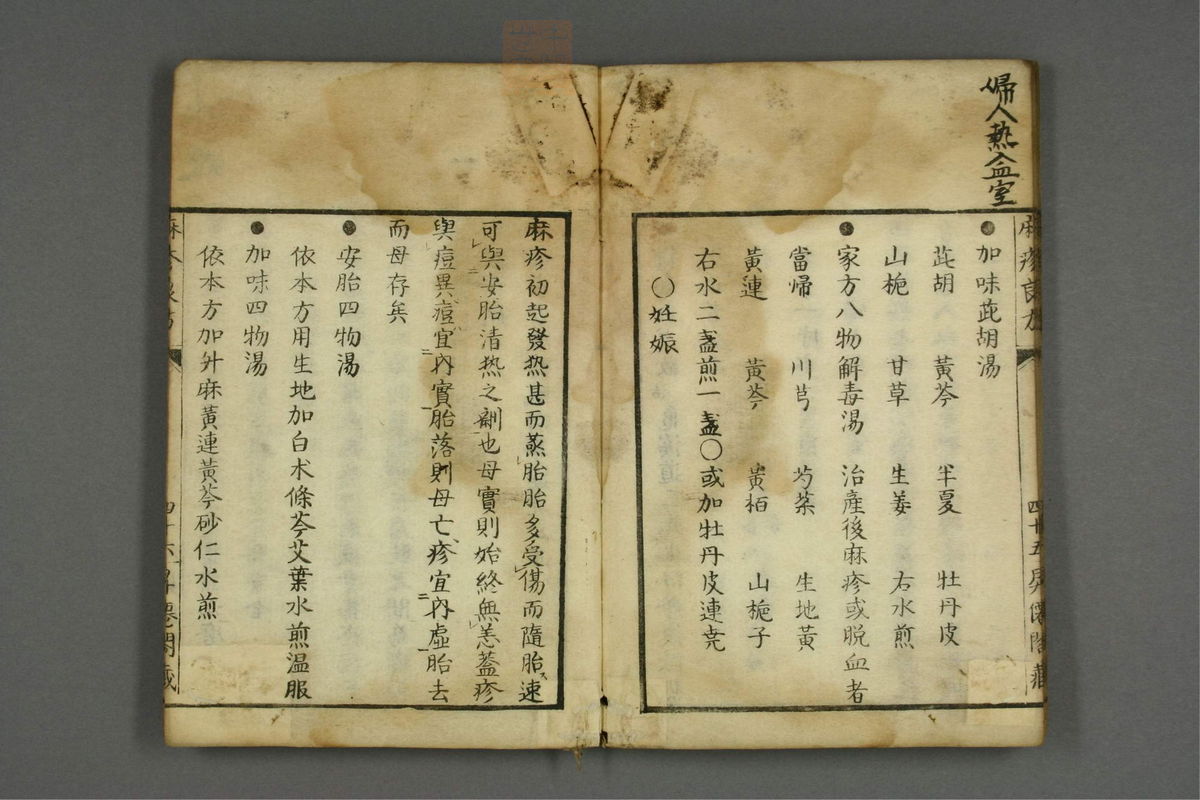 婦人熱入血室
加味茈胡湯
茈胡 黃芩 半夏 牡丹皮
山梔 甘草 生姜 右水煎
家方八物解毒湯 治產後麻疹或脫血者
當歸 川芎 芍藥 生地黃
黃連 黃芩 黃栢 山梔子
右水二盞煎一盞〇或加牡丹皮連尭
〇妊娠
麻疹初起發热甚而蒸胎胎多受傷而隨胎速
可與安胎清热之劑也母實則始終無恙蓋疹
與痘異痘宜內實胎落則母亡疹宜內虛胎去
而母存矣
安胎四物湯
依本方用生地加白朮條芩艾葉水煎温服
加味四物湯
依本方加升麻黃連黃芩砂仁水煎